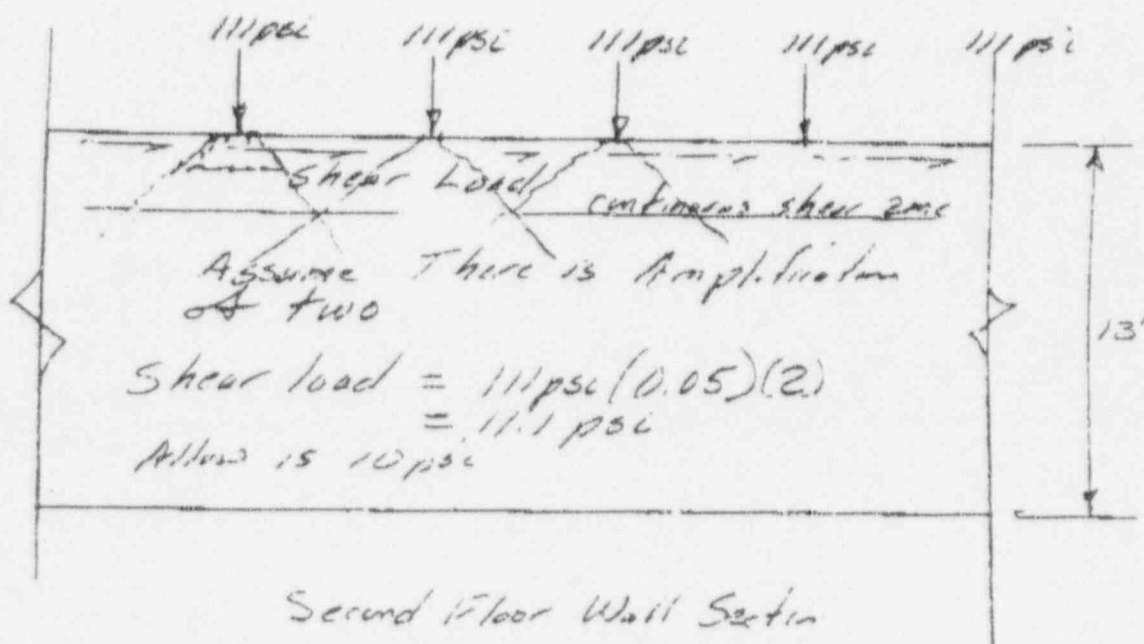 111psi 111psi 111psi 111psi 111psi
Shear Load
continuous shear zone
Assume There is Amplification
of two
13'
Shear load = 111psi(0.05)(2)
= 11.1 psi
Allow is 10psi
Second Floor Wall Sectin